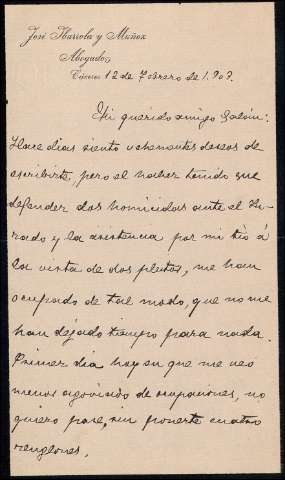 José Ibarrola y Muñoz
Abogado
Cáceres 12 de Febrero de 1.907.
Mi querido amigo Galán:
Hace dias siento vehementes deseos de
escribirte, pero el haber tenido que
defender dos homicidas ante el Ju-
rado y la asistencia por mi tio á
la vista de dos pleitos, me han
ocupado de tal modo, que no me
han dejado tiempo para nada.
Primer dia hoy en que me veo
menos agoviado de ocupaciones, no
quiero pase, sin ponerte cuatro
renglones.